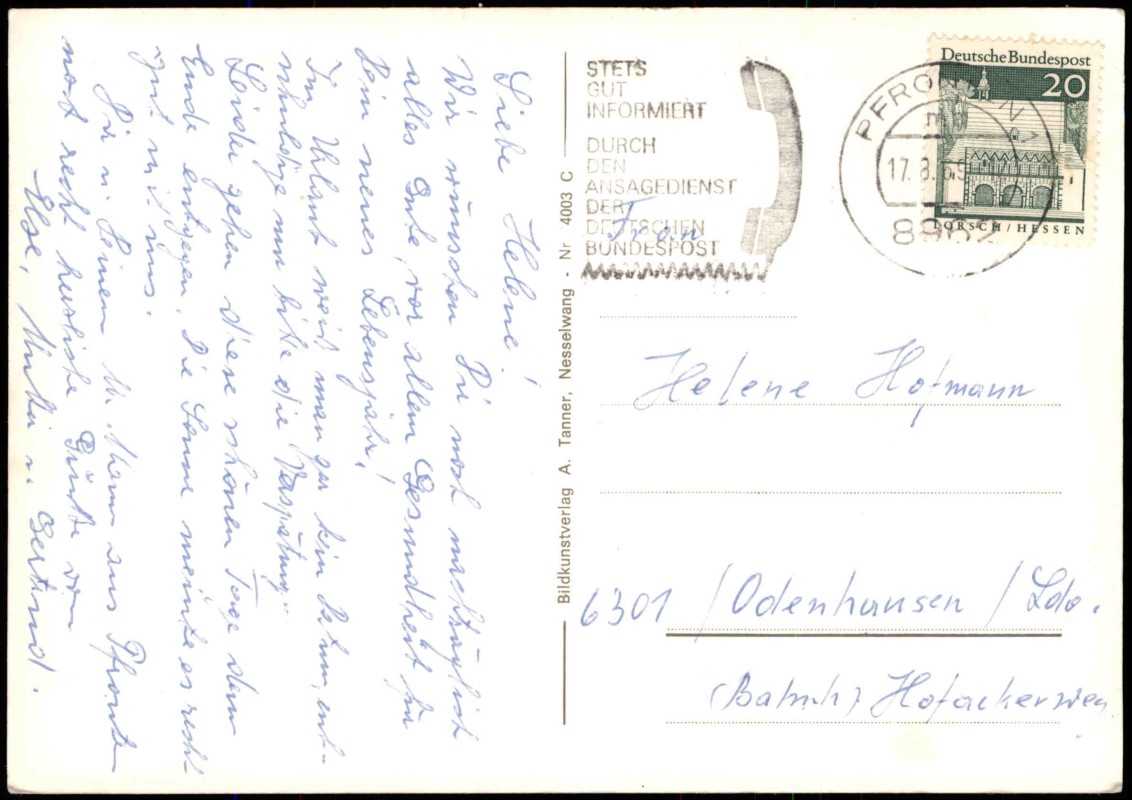 Liebe Helene!
Wir wünschen Dir noch nachträglich
alles Gute, vor allem Gesundheit für
Dein neues Lebensjahr!
Im Urlaub weiß man gar kein Datum, ent-
schuldige nun bitte die Verspätung.
Leider gehen diese schönen Tage dem
Ende entgegen. Die Sonne meinte es recht
gut mit uns.
Dir u. Deinem lb. Mann aus Pfronten
noch recht herzliche Grüße von
Else, u. Gertrud.
Bildkunstverlag A. Tanner, Nesselwang - Nr 4003 C
STETS
GUT
INFORMIERT
DURCH
DEN
ANSAGEDIENST
DER
DEUTSCHEN
BUNDESPOST
PFRONTEN 1
17.8.69
8962
Deutsche Bundespost
20
LORSCH/HESSEN
Frau
Helene Hofmann
6301 / Odenhausen / Lda.
(Bahnh) Hofackerweg